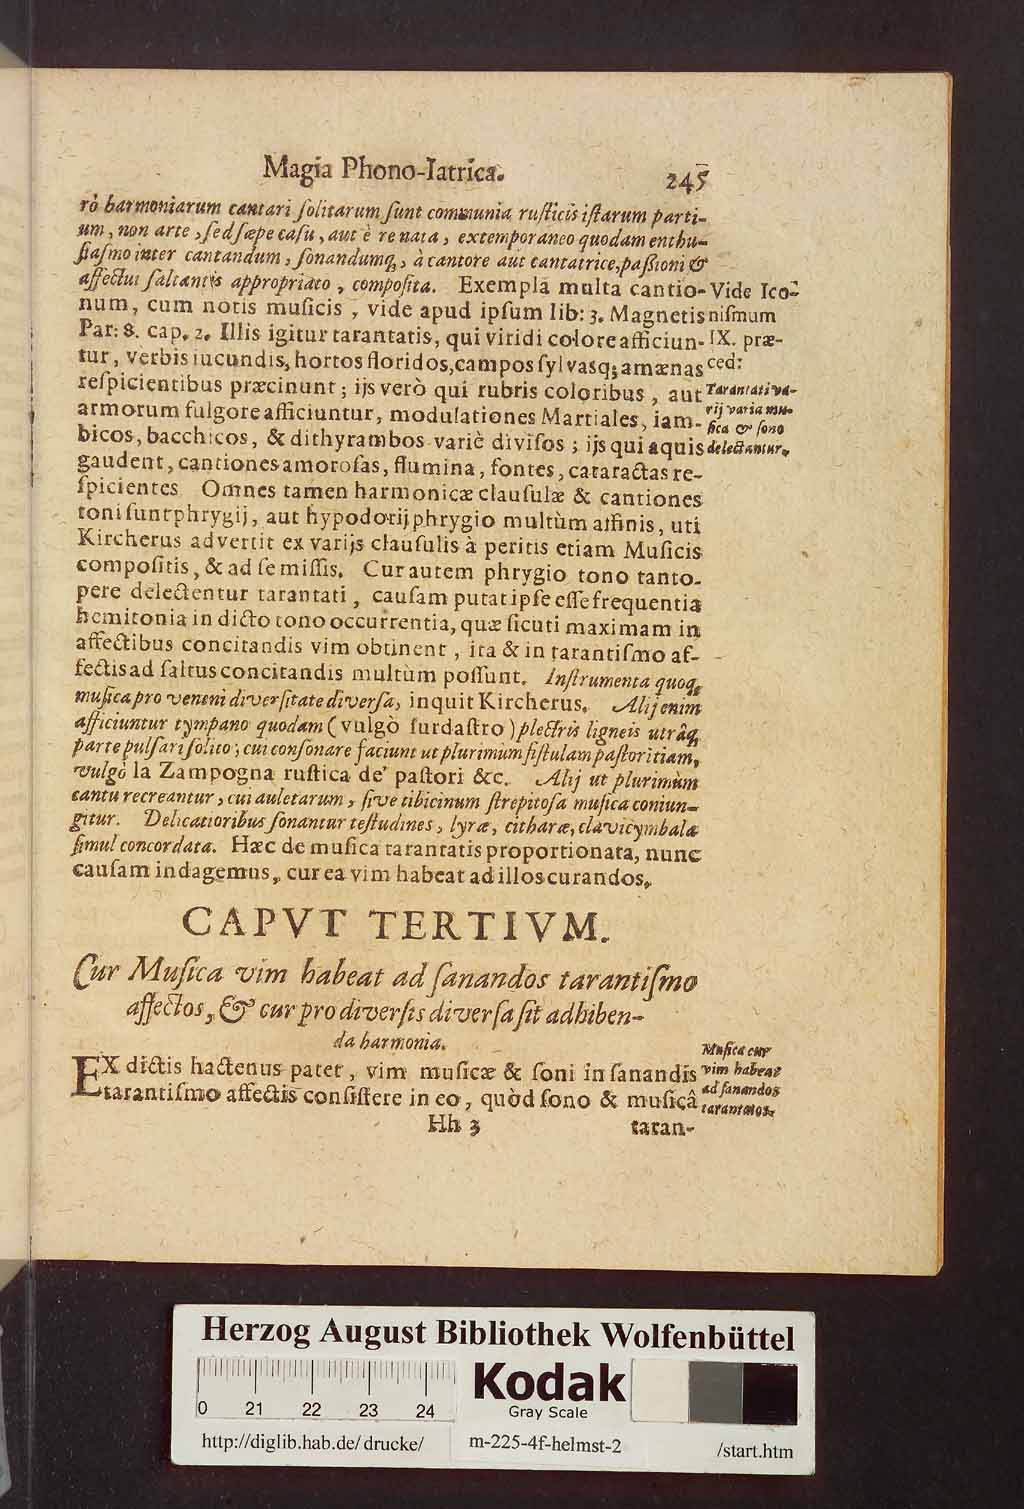 Magia Phono-Iatrica.
245
rò harmoniarum cantari ſolitarum ſunt communia ruſticis iſtarum parti-
um, non arte, ſed ſæpe caſu, aut è re nata, extemporaneo quodam enthu-
ſiaſmo inter cantandum, ſonandumq;, à cantore aut cantatrice, paßioni &
affectui ſaltantis appropriato, compoſita. Exempla multa cantio-
num, cum notis muſicis, vide apud ipſum lib: 3. Magnetis
Par: 8. cap. 2. Illis igitur tarantatis, qui viridi colore afficiun-
tur, verbis iucundis, hortos floridos, campos ſylvasq; amænas
reſpicientibus præcinunt; ijs verò qui rubris coloribus, aut
armorum fulgore afficiuntur, modulationes Martiales, iam-
bicos, bacchicos, & dithyrambos variè diviſos; ijs qui aquis
gaudent, cantiones amoroſas, flumina, fontes, cataractas re-
ſpicientes. Omnes tamen harmonicæ clauſulæ & cantiones
toni ſunt phrygij, aut hypodorij phrygio multùm affinis, uti
Kircherus advertit ex varijs clauſulis à peritis etiam Muſicis
compoſitis, & ad ſe miſſis. Cur autem phrygio tono tanto-
pere delectentur tarantati, cauſam putat ipſe eſſe frequentia
hemitonia in dicto tono occurrentia, quæ ſicuti maximam in
affectibus concitandis vim obtinent, ita & in tarantiſmo af-
fectis ad ſaltus concitandis multùm poſſunt. Inſtrumenta quoq;
muſica pro veneni diverſitate diverſa, inquit Kircherus. Alij enim
afficiuntur tympano quodam (vulgò ſurdaſtro) plectris ligneis utrâq;
parte pulſari ſolito; cui conſonare faciunt ut plurimum fiſtulam paſtoritiam,
vulgò la Zampogna ruſtica de' paſtori &c. Alij ut plurimùm
cantu recreantur, cui auletarum, ſive tibicinum ſtrepitoſa muſica coniun-
gitur. Delicatioribus ſonantur teſtudines, lyræ, citharæ, clavicymbala
ſimul concordata. Hæc de muſica tarantatis proportionata, nunc
cauſam indagemus, cur ea vim habeat ad illos curandos.
Vide Ico-
niſmum
IX. præ-
ced:
Tarantati va-
rij varia mu-
ſica & ſono
delectantur.
CAPVT TERTIVM.
Cur Muſica vim habeat ad ſanandos tarantiſmo
affectos, & cur pro diverſis diverſa ſit adhiben-
da harmonia.
EX dictis hactenus patet, vim muſicæ & ſoni in ſanandis
tarantiſmo affectis conſiſtere in eo, quòd ſono & muſicâ
Muſica cur
vim habeat
ad ſanandos
tarantatos.
Hh 3
taran-
Herzog August Bibliothek Wolfenbüttel
0 21 22 23 24
Kodak
Gray Scale
http://diglib.hab.de/drucke/
m-225-4f-helmst-2
/start.htm